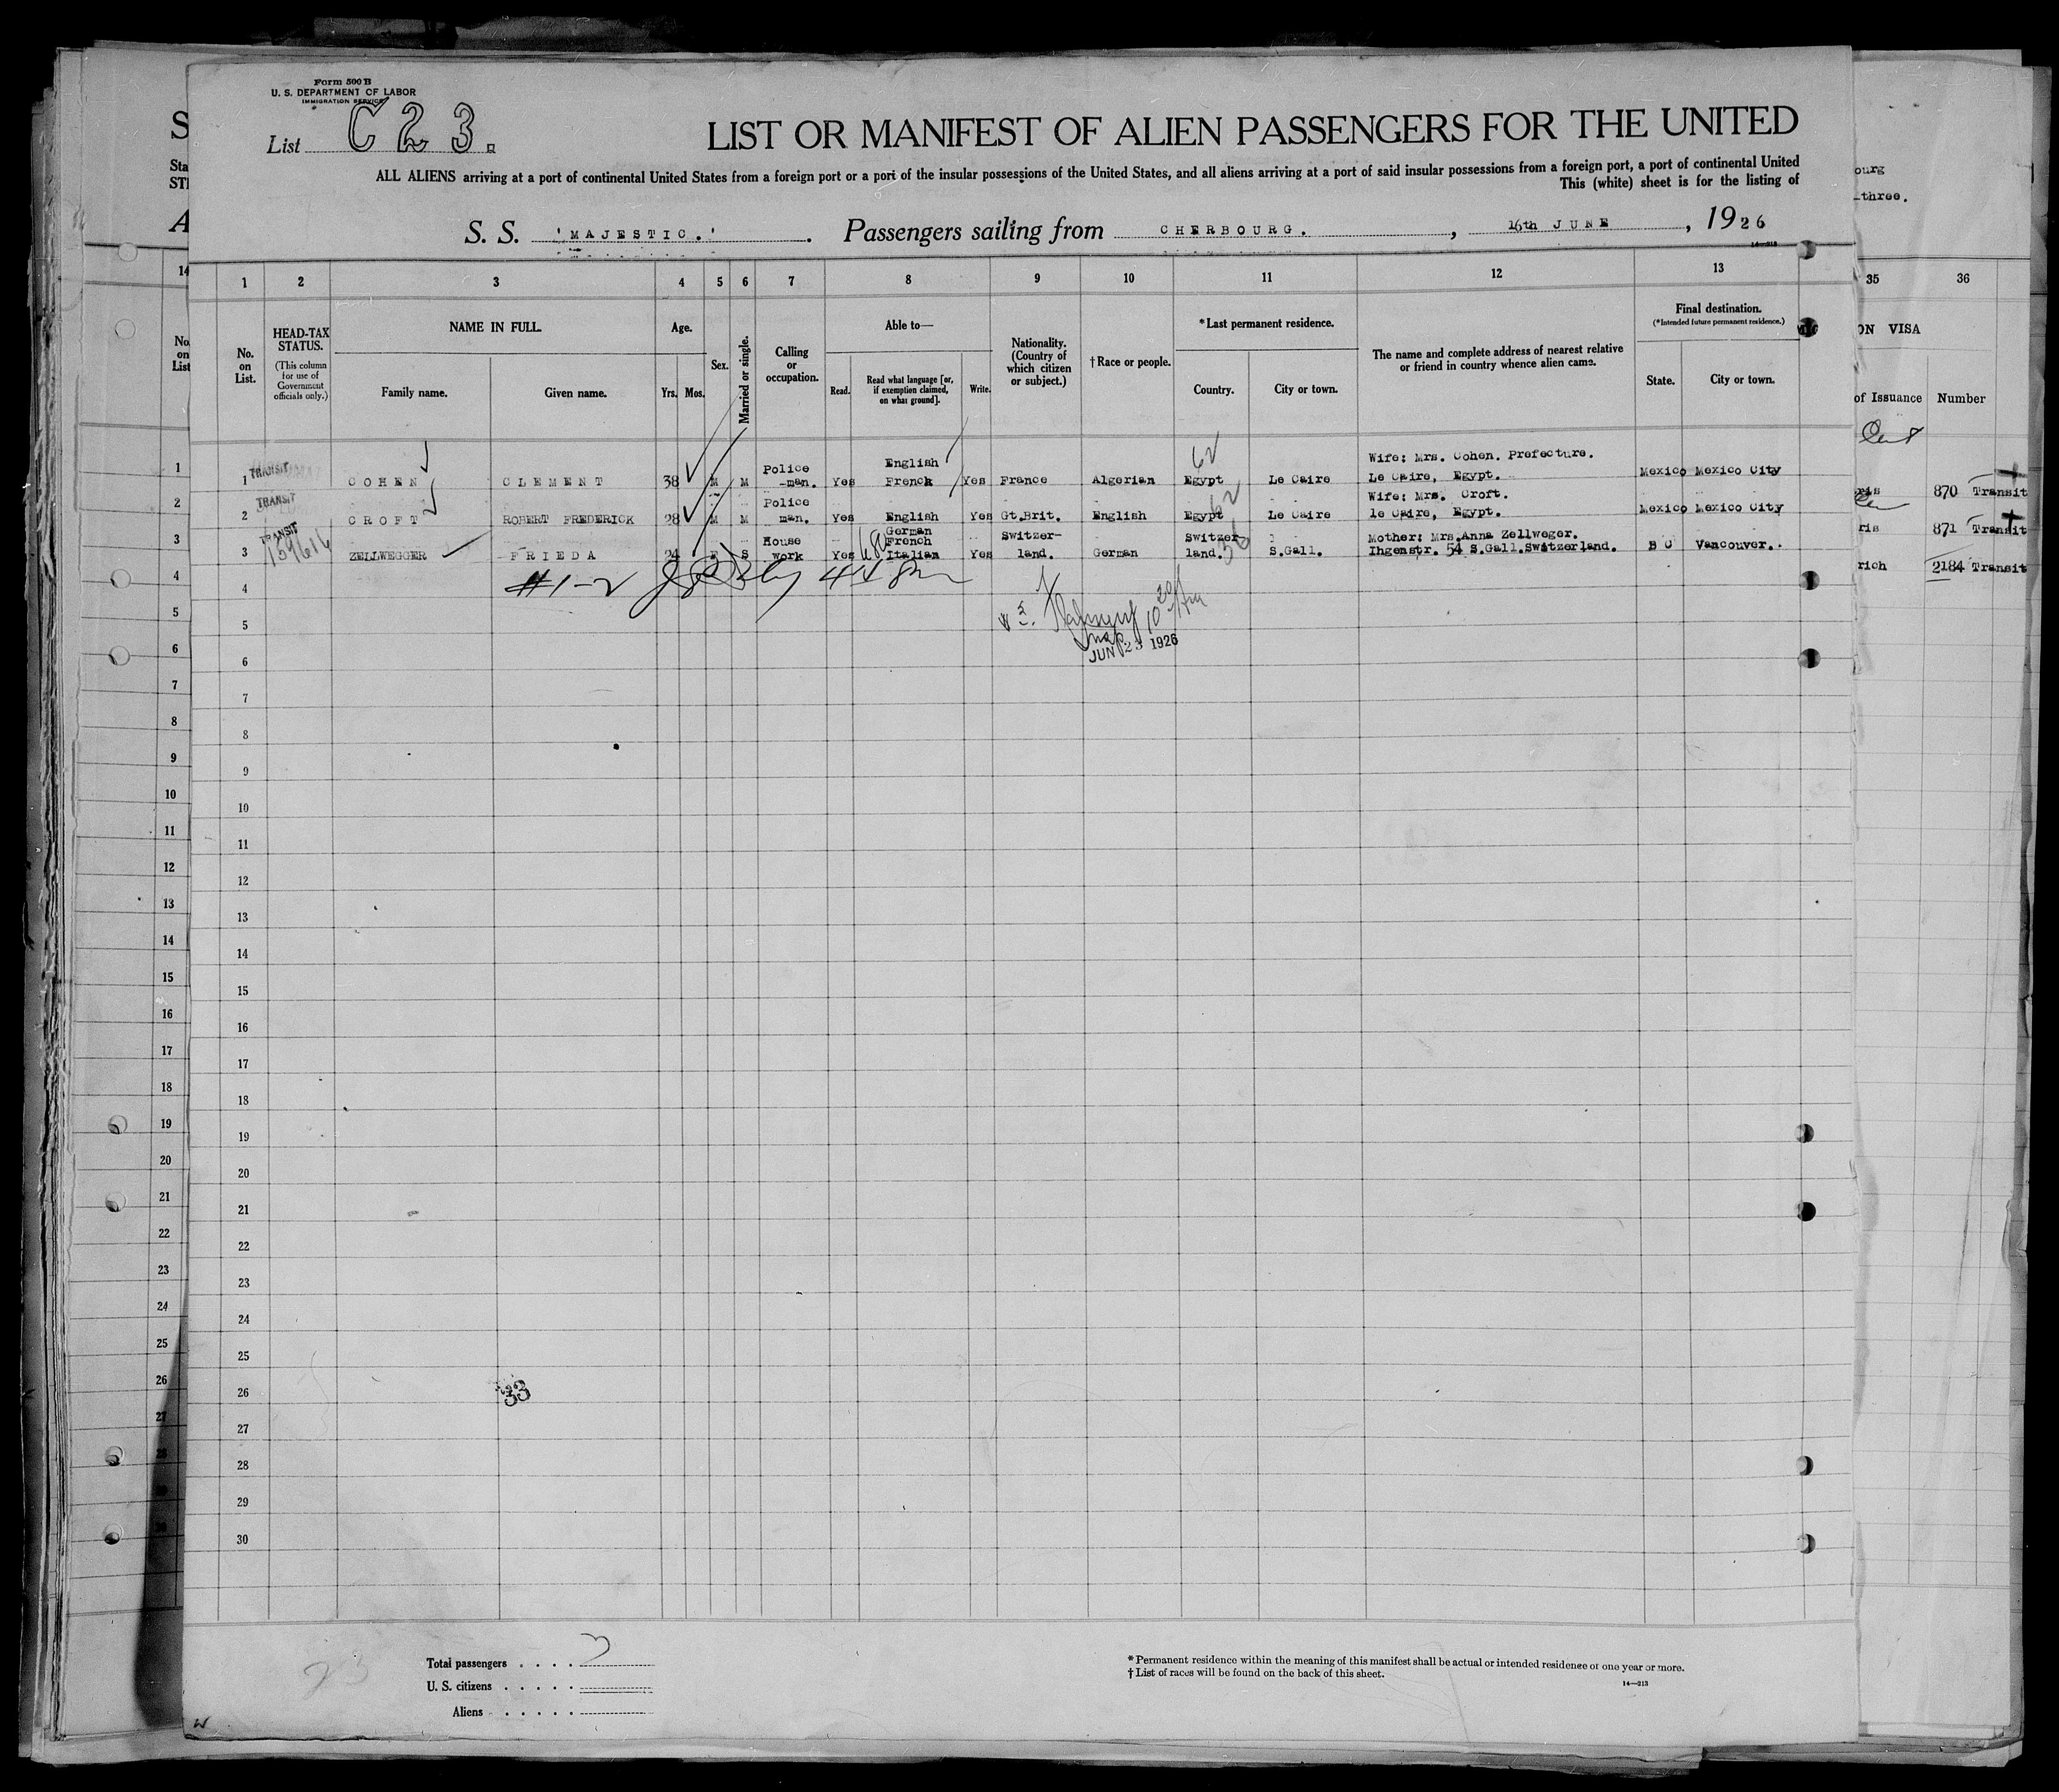 Form 500 B
U. S. DEPARTMENT OF LABOR
IMMIGRATION SERVICE
List C 2 3.
LIST OR MANIFEST OF ALIEN PASSENGERS FOR THE UNITED
ALL ALIENS arriving at a port of continental United States from a foreign port or a port of the insular possessions of the United States, and all aliens arriving at a port of said insular possessions from a foreign port, a port of continental United
This (white) sheet is for the listing of
S. S. 'MAJESTIC.' . Passengers sailing from CHERBOURG. , 16th JUNE , 1926
14—213
1 2 3 4 5 6 7 8 9 10 11 12 13
HEAD-TAX STATUS.
(This column for use of Government officials only.)
No. on List.
NAME IN FULL.
Family name. Given name.
Age.
Yrs. Mos.
Sex.
Married or single.
Calling or occupation.
Able to—
Read. Read what language [or, if exemption claimed, on what ground]. Write.
Nationality. (Country of which citizen or subject.)
†Race or people.
*Last permanent residence.
Country. City or town.
The name and complete address of nearest relative or friend in country whence alien came.
Final destination.
(*Intended future permanent residence.)
State. City or town.
1 TRANSIT COHEN CLEMENT 38 M M Police-man. Yes English French Yes France Algerian Egypt Le Caire Wife: Mrs. Cohen. Prefecture. Le Caire, Egypt. Mexico Mexico City
62
2 TRANSIT CROFT ROBERT FREDERICK 28 M M Police man. Yes English Yes Gt.Brit. English Egypt Le Caire Wife: Mrs. Croft. le Caire, Egypt. Mexico Mexico City
62
3 TRANSIT ZELLWEGGER FRIEDA 24 F S House work Yes German French Italian Yes Switzer-land. German Switzer land. S.Gall. Mother: Mrs.Anna Zellweger. Ihgenstr. 54 S.Gall.Switzerland. B C Vancouver.
#1-2
JUN 23 1926
4
5
6
7
8
9
10
11
12
13
14
15
16
17
18
19
20
21
22
23
24
25
26
27
28
29
30
33
23
Total passengers . . . .
U. S. citizens . . . . .
Aliens . . . . .
*Permanent residence within the meaning of this manifest shall be actual or intended residence of one year or more.
†List of races will be found on the back of this sheet.
14—213
W
S
Sta
STI
A
14
No. on List
1
2
3
4
5
6
7
8
9
10
11
12
13
14
15
16
17
18
19
20
21
22
23
24
25
26
27
ourg
-three.
35 36
ON VISA
of Issuance Number
ris 870 Transit
ris 871 Transit
rich 2184 Transit